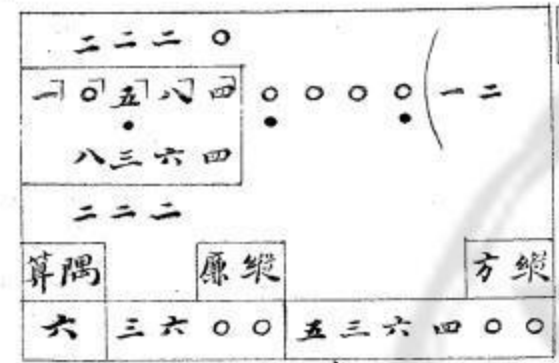 二二二〇
一〇五八四〇〇〇〇(一二
八三六四
二二二
算隅 廉縱 方縱
六 三六〇〇 五三六四〇〇